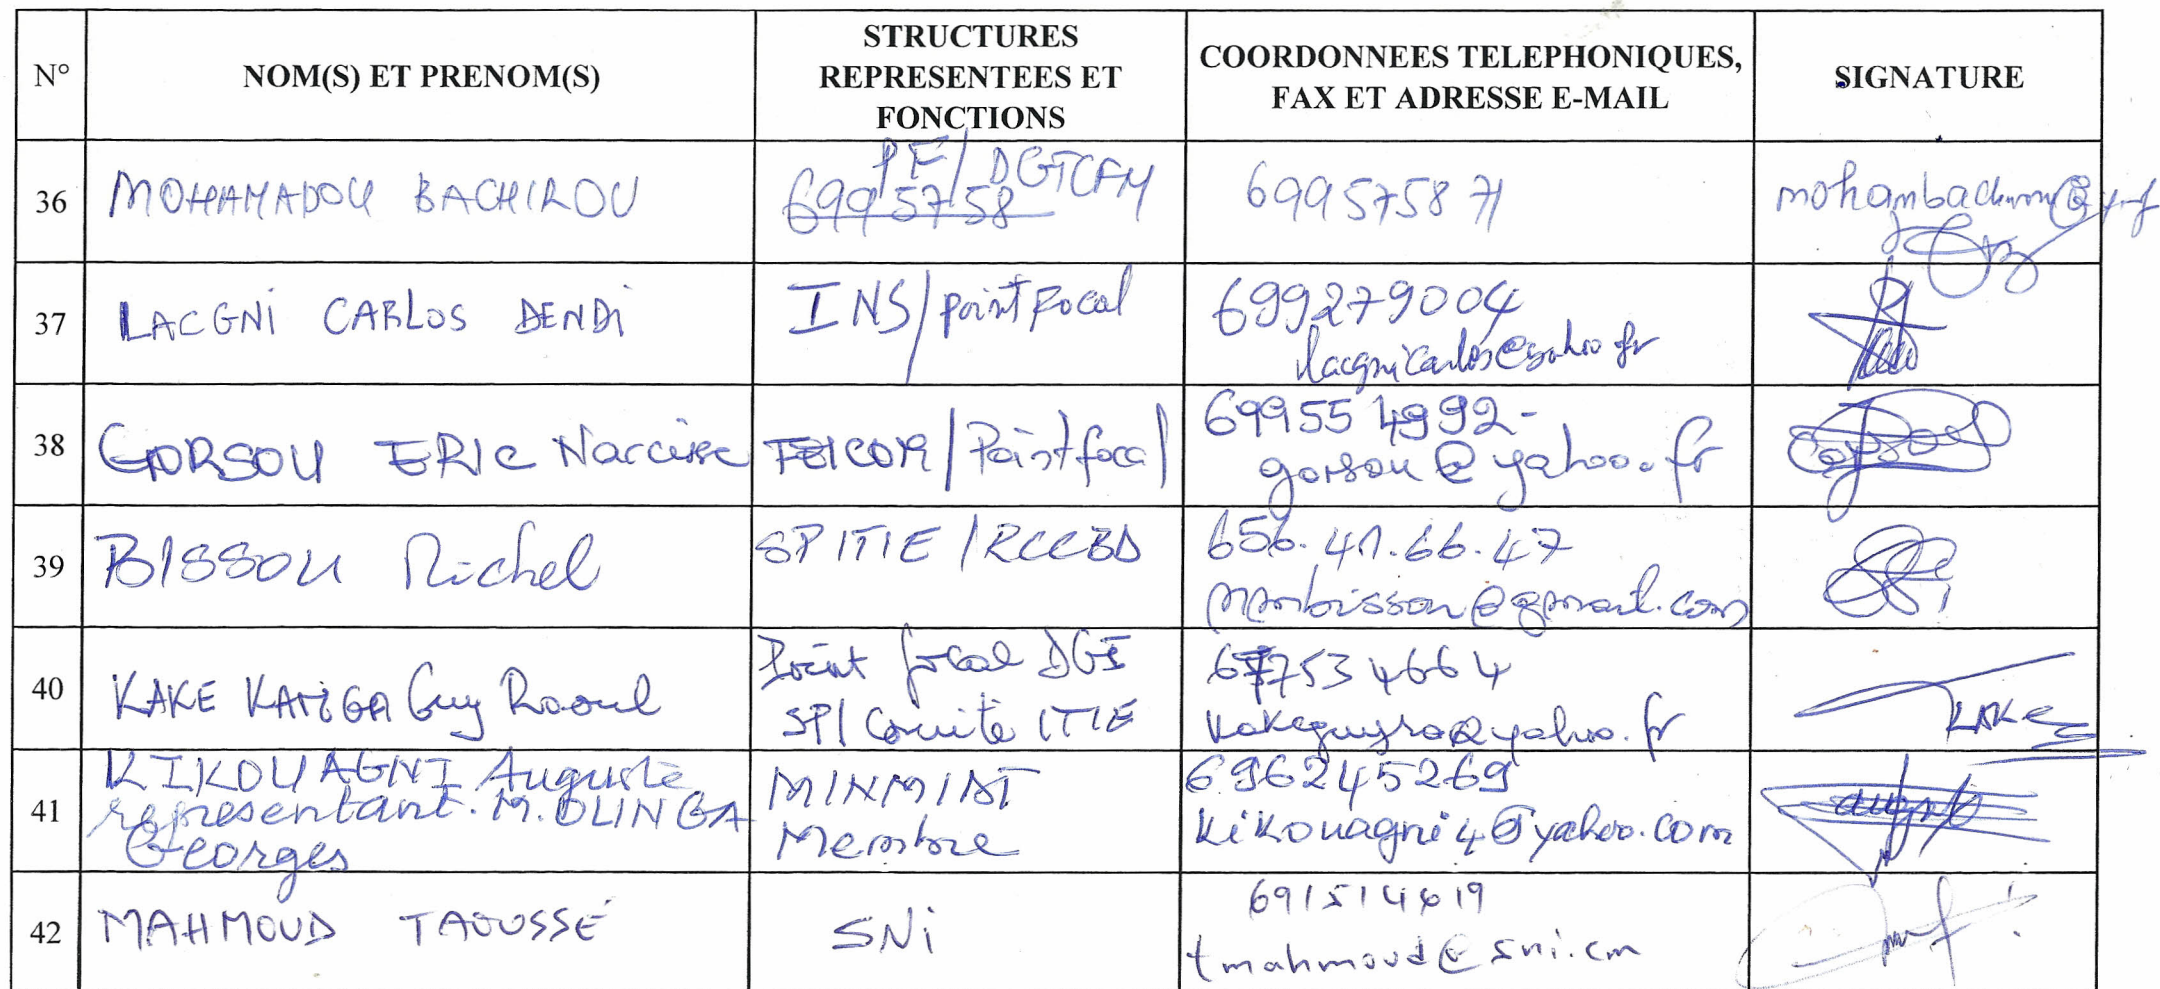 N°
NOM(S) ET PRENOM(S)
STRUCTURES
REPRESENTEES ET
FONCTIONS
COORDONNEES TELEPHONIQUES,
FAX ET ADRESSE E-MAIL
SIGNATURE
36
MOHAMADOU BACHIROU
PF/DGTCFM
699 57 58
699 5758 71
37
LACGNi CARLOS DENDi
INS/point focal
699279004
lacgnicarlos@yahoo.fr
38
GORSOU ERIC Narcisse
FEICOM/Point focal
69955 4992-
gorsou@yahoo.fr
39
BISSOU Michel
SP ITIE /RCCBD
656.41.66.47
mmbissou@gmail.com
40
KAKE KAMGA Guy Raoul
Point focal DGI
SP/Comité ITIE
677534664
kakeguyra@yahoo.fr
KAKE
41
KIKOUAGNI Auguste
representant. M. OLINGA
Georges
MINMIDT
Membre
696245269
kikouagni4@yahoo.com
42
MAHMOUD TAOUSSÉ
SNi
tmahmoud@sni.cm